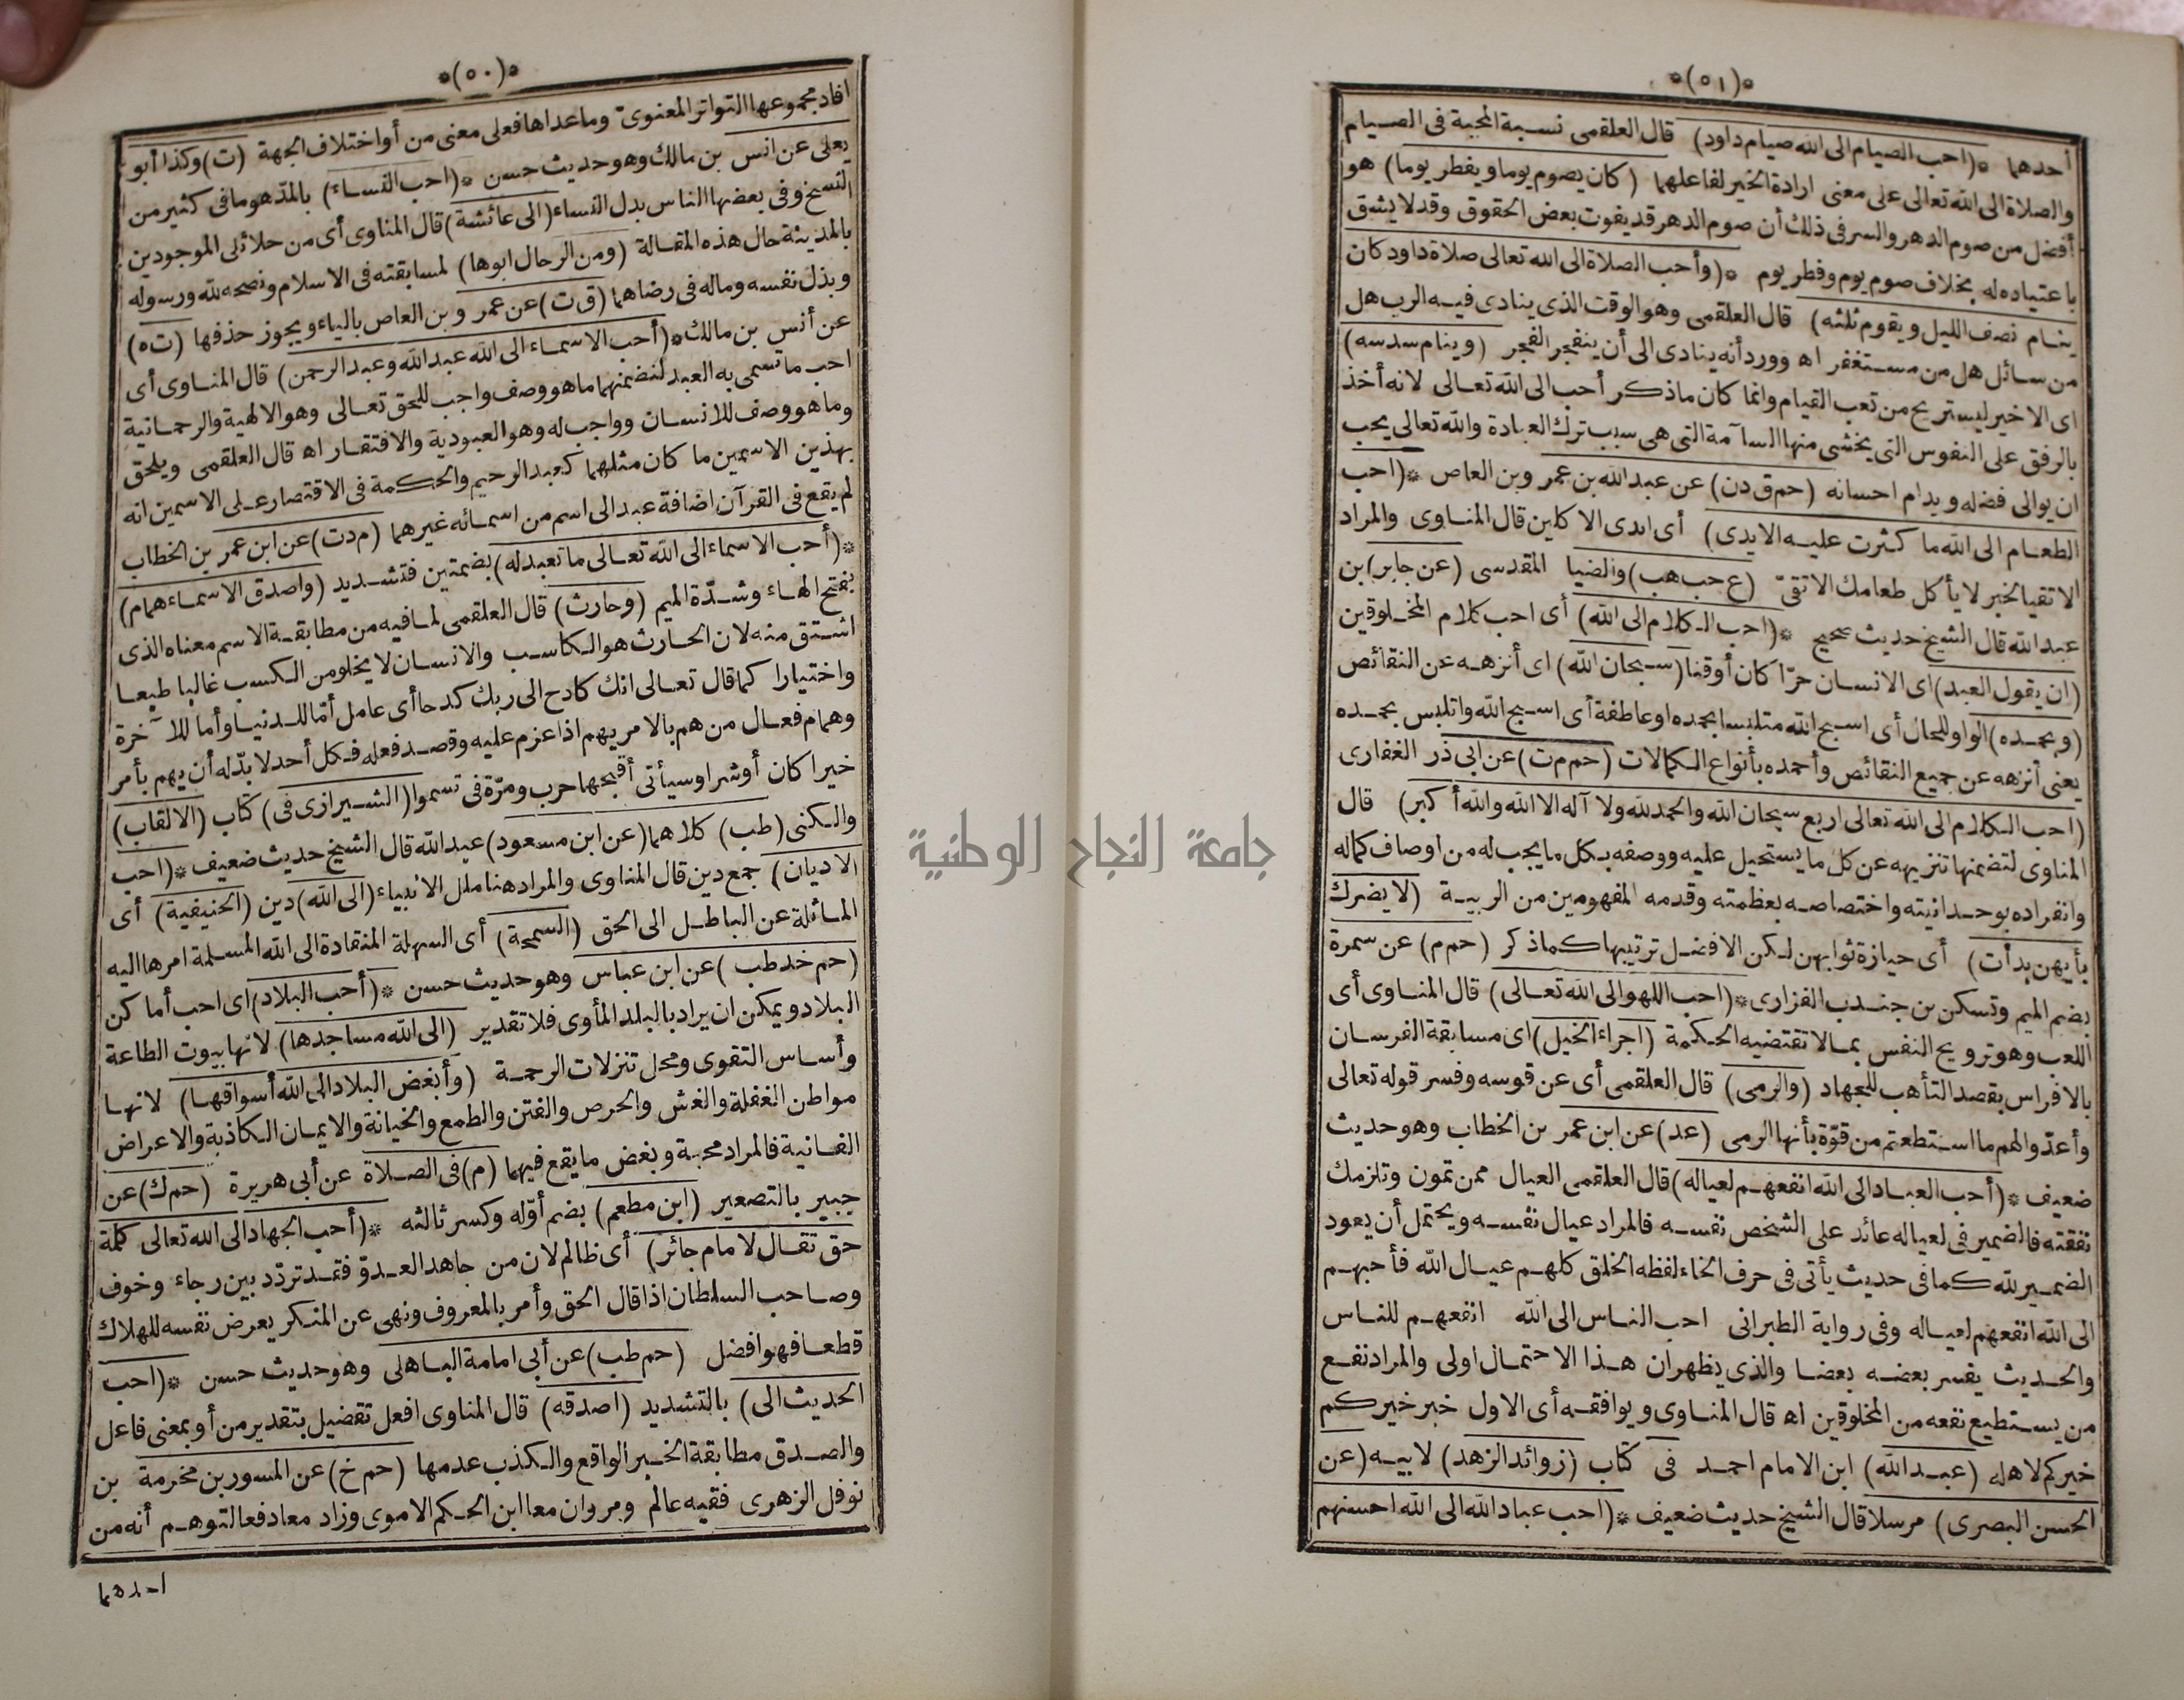 *(٥٠)*
افاد مجموعها التواتر المعنوى وما عداها فعلى معنى من أو اختلاف الجهة (ت) وكذا أبو
يعلى عن انس بن مالك وهو حديث حسن *(احب النساء) بالمدّ هو ما فى كثير من
النسخ وفى بعضها الناس بدل النساء (الى عائشة) قال المناوى أى من حلائلى الموجودين
بالمدينة حال هذه المقالة (ومن الرجال ابوها) لمسابقته فى الاسلام ونصحه لله ورسوله
وبذل نفسه وماله فى رضاهما (ق ت) عن عمر وبن العاص بالياء ويجوز حذفها (ت ه)
عن أنس بن مالك *(أحب الاسماء الى الله عبد الله وعبد الرحمن) قال المناوى أى
احب ما تسمى به العبد لتضمنهما ما هو وصف واجب للحق تعالى وهو الالهية والرحمانية
وما هو وصف للانسان وواجب له وهو العبودية والافتقار اه قال العلقمى ويلحق
بهذين الاسمين ما كان مثلهما كعبد الرحيم والحكمة فى الاقتصار على الاسمين انه
لم يقع فى القرآن اضافة عبد الى اسم من اسمائه غيرهما (م د ت) عن ابن عمر بن الخطاب
*(أحب الاسماء الى الله تعالى ما تعبد له) بضمتين فتشديد (واصدق الاسماء همام)
بفتح الهاء وشدّة الميم (وحارث) قال العلقمى لما فيه من مطابقة الاسم معناه الذى
اشتق منه لان الحارث هو الكاسب والانسان لا يخلو من الكسب غالبا طبعا
واختيارا كما قال تعالى انك كادح الى ربك كدحا أى عامل أمّا للدنيا وأما للآخرة
وهمام فعال من هم بالامر يهم اذا عزم عليه وقصد فعله فكل أحد لا بدّ له أن يهم بأمر
خيرا كان أو شرا وسيأتى أقبحها حرب ومرّة فى تسموا (الشيرازى فى) كتاب (الالقاب)
والكنى (طب) كلاهما (عن ابن مسعود) عبد الله قال الشيخ حديث ضعيف *(احب
الاديان) جمع دين قال المناوى والمراد هنا ملل الانبياء (الى الله) دين (الحنيفية) أى
المائلة عن الباطل الى الحق (السمحة) أى السهلة المنقادة الى الله المسلمة امرها اليه
(حم خد طب) عن ابن عباس وهو حديث حسن *(أحب البلاد) اى احب أماكن
البلاد ويمكن ان يراد بالبلد المأوى فلا تقدير (الى الله مساجدها) لانها بيوت الطاعة
وأساس التقوى ومحل تنزلات الرحمة (وأبغض البلاد الى الله أسواقها) لانها
مواطن الغفلة والغش والحرص والفتن والطمع والخيانة والايمان الكاذبة والاعراض
الفانية فالمراد محبة وبغض ما يقع فيهما (م) فى الصلاة عن أبى هريرة (حم ك) عن
جبير بالتصغير (ابن مطعم) بضم أوّله وكسر ثالثه *(أحب الجهاد الى الله تعالى كلمة
حق تقال لامام جائر) أى ظالم لان من جاهد العدوّ فقد تردّد بين رجاء وخوف
وصاحب السلطان اذا قال الحق وأمر بالمعروف ونهى عن المنكر يعرض نفسه للهلاك
قطعا فهو افضل (حم طب) عن أبى امامة الباهلى وهو حديث حسن *(احب
الحديث الى) بالتشديد (اصدقه) قال المناوى افعل تفضيل بتقدير من أو بمعنى فاعل
والصدق مطابقة الخبر الواقع والكذب عدمها (حم خ) عن المسور بن مخرمة بن
نوفل الزهرى فقيه عالم ومروان معا ابن الحكم الاموى وزاد معا دفعا لتوهم أنه من
احدهما
*(٥١)*
أحدهما *(احب الصيام الى الله صيام داود) قال العلقمى نسبة المحبة فى الصيام
والصلاة الى الله تعالى على معنى ارادة الخير لفاعلهما (كان يصوم يوما ويفطر يوما) هو
أفضل من صوم الدهر والسر فى ذلك أن صوم الدهر قد يفوت بعض الحقوق وقد لا يشق
باعتياده له بخلاف صوم يوم وفطر يوم *(وأحب الصلاة الى الله تعالى صلاة داود كان
ينام نصف الليل ويقوم ثلثه) قال العلقمى وهو الوقت الذى ينادى فيه الرب هل
من سائل هل من مستغفر اه وورد أنه ينادى الى أن ينفجر الفجر (وينام سدسه)
اى الاخير ليستريح من تعب القيام وانما كان ماذكر أحب الى الله تعالى لانه أخذ
بالرفق على النفوس التى يخشى منها السآمة التى هى سبب ترك العبادة والله تعالى يحب
ان يوالى فضله ويدام احسانه (حم ق د ن) عن عبد الله بن عمر وبن العاص *(احب
الطعام الى الله ما كثرت عليه الايدى) أى ايدى الاكلين قال المناوى والمراد
الاتقيا لخبر لا يأكل طعامك الا تقىّ (ع حب هب) والضيا المقدسى (عن جابر) بن
عبد الله قال الشيخ حديث صحيح *(احب الكلام الى الله) أى احب كلام المخلوقين
(ان يقول العبد) اى الانسان حرّا كان أو قنا (سبحان الله) اى أنزهه عن النقائص
(وبحمده) الواو للحال أى اسبح الله متلبسا بحمده او عاطفة أى اسبح الله واتلبس بحمده
يعنى أنزهه عن جميع النقائص وأحمده بأنواع الكمالات (حم م ت) عن ابى ذر الغفارى
(احب الكلام الى الله تعالى اربع سبحان الله والحمد لله ولا آله الا الله والله أكبر) قال
المناوى لتضمنها تنزيهه عن كل ما يستحيل عليه ووصفه بكل ما يجب له من اوصاف كماله
وانفراده بوحدانيته واختصاصه بعظمته وقدمه المفهومين من الربية (لا يضرك
بأيهن بدأت) أى حيازة ثوابهن لكن الافضل ترتيبها كماذكر (حم م) عن سمرة
بضم الميم وتسكن بن جندب الفزارى *(احب اللهو الى الله تعالى) قال المناوى أى
اللعب وهو ترويح النفس بما لا تقتضيه الحكمة (اجراء الخيل) اى مسابقة الفرسان
بالافراس بقصد التأهب للجهاد (والرمى) قال العلقمى أى عن قوسه وفسر قوله تعالى
وأعدّوا لهم ما استطعتم من قوّة بأنها الرمى (عد) عن ابن عمر بن الخطاب وهو حديث
ضعيف *(أحب العباد الى الله انفعهم لعياله) قال العلقمى العيال ممن تمون وتلزمك
نفقته فالضمير فى لعياله عائد على الشخص نفسه فالمراد عيال نفسه ويحتمل أن يعود
الضمير لله كما فى حديث يأتى فى حرف الخاء لفظه الخلق كلهم عيال الله فأحبهم
الى الله انفعهم لعياله وفى رواية الطبرانى احب الناس الى الله انفعهم للناس
والحديث يفسر بعضه بعضا والذى يظهر ان هذا الاحتمال اولى والمراد نفع
من يستطيع نفعه من المخلوقين اه قال المناوى ويوافقه أى الاول خبر خيركم
خيركم لاهله (عبد الله) ابن الامام احمد فى كتاب (زوائد الزهد) لابيه (عن
الحسن البصرى) مرسلا قال الشيخ حديث ضعيف *(احب عباد الله الى الله احسنهم
جامعة النجاح الوطنية